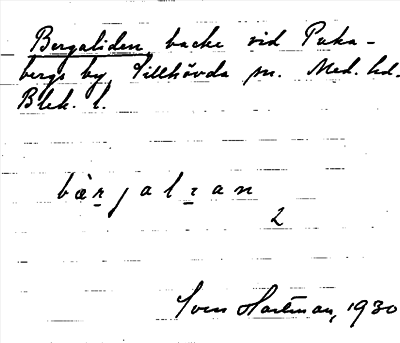 Bergaliden, backe vid Puka-
bergs by, Tillhövda sn. Med. hd.
Blek. l.
bær̲jalɿan
2
Sven Hartman, 1930